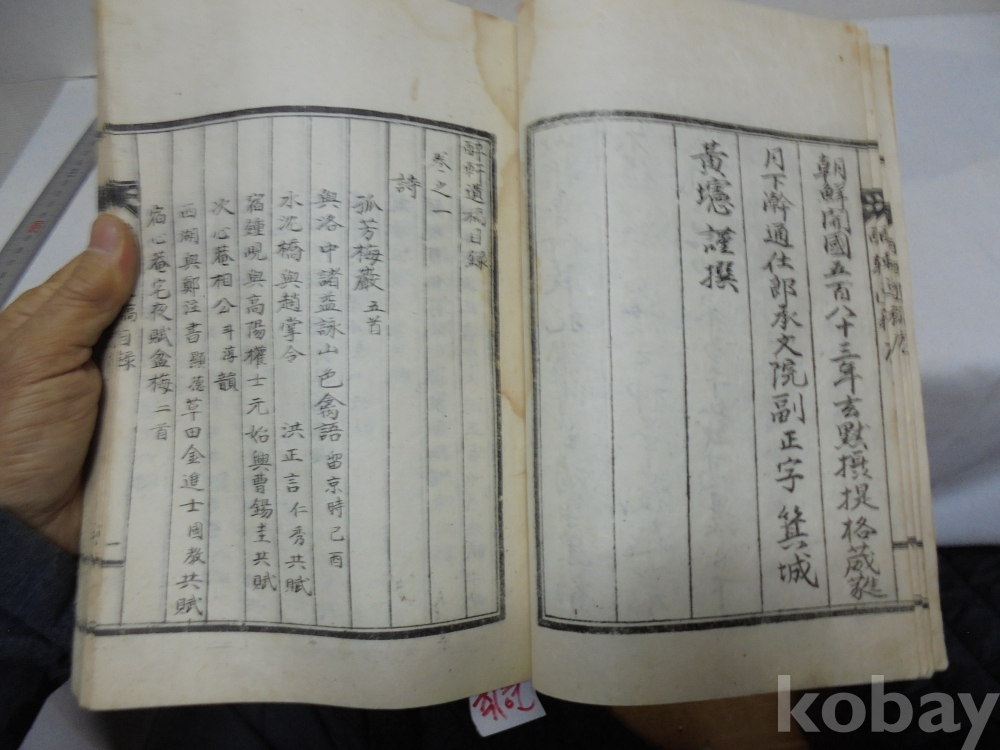 朝鮮開國五百八十三年玄黓攝提格葳蕤
月下澣通仕郎承文院副正字箕城
黃𤨒謹撰
醉軒遺稿目録
卷之一
詩
孤芳梅巖 五首
與洛中諸益詠山色禽語 留京時己酉
水沈橋與趙掌令 洪正言仁秀共賦
宿鐘峴與高陽權士元始興曹錫圭共賦
次心菴相公斗淳韻
西湖與鄭注書顯德草田金進士周教共賦
宿心菴宅夜賦盆梅二首
稿目録
一
취헌
kobay